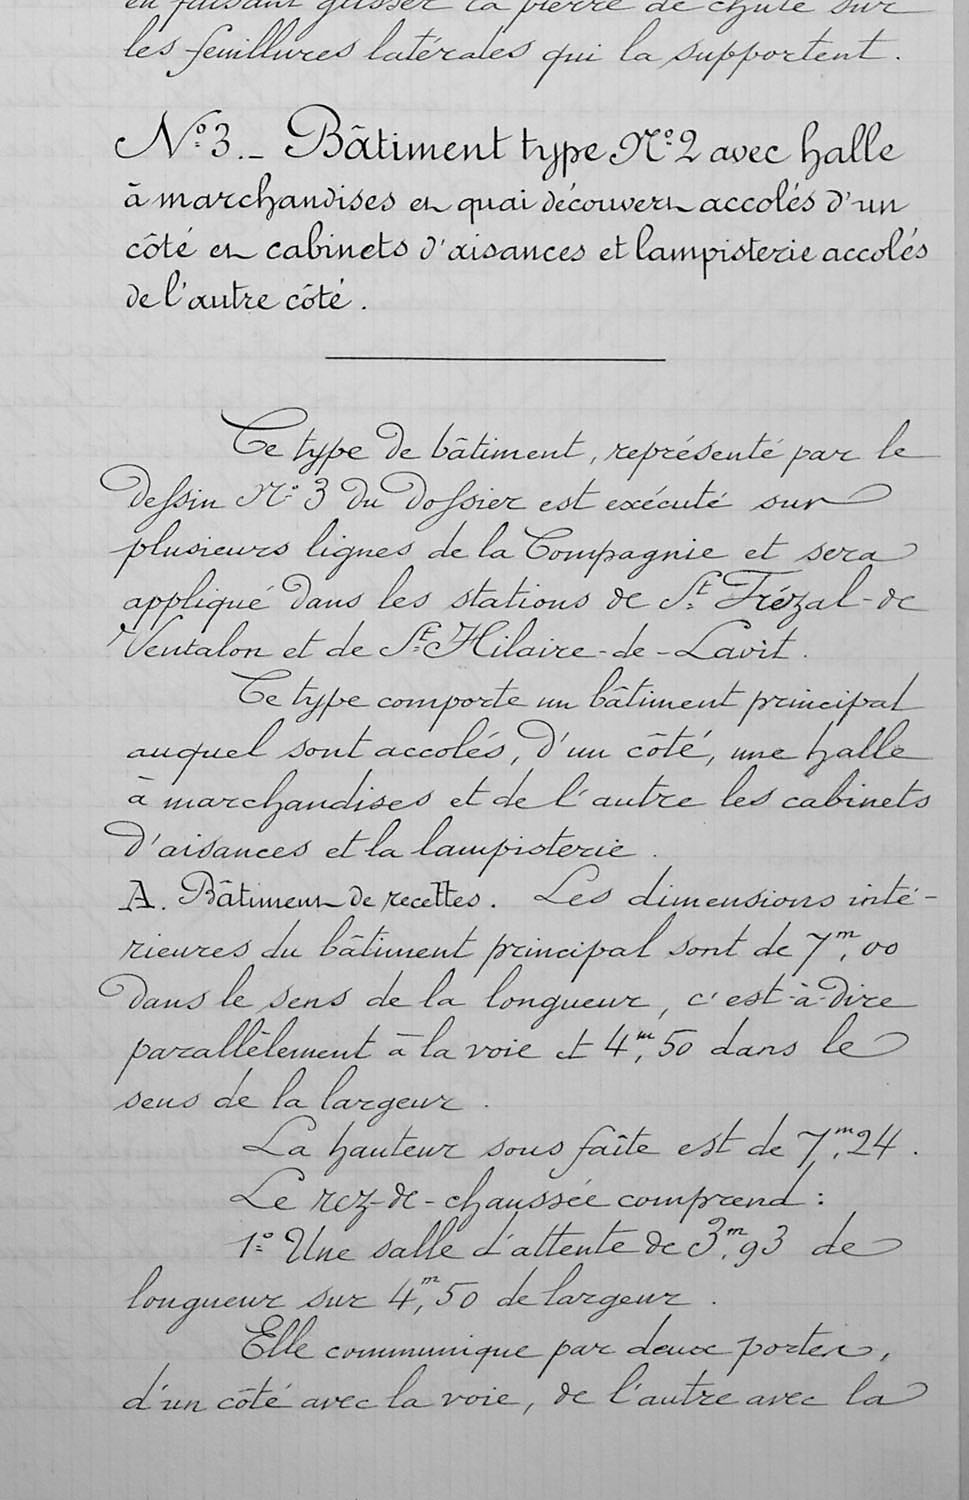 en faisant glisser la pierre de chute sur
les feuillures latérales qui la supportent.
N° 3. _ Bâtiment type N° 2 avec halle
à marchandises et quai découvert accolés d'un
côté et cabinets d'aisances et lampisterie accolés
de l'autre côté.
Ce type de bâtiment, représenté par le
dessin N° 3 du dossier est exécuté sur
plusieurs lignes de la Compagnie et sera
appliqué dans les stations de St Frézal-de
Ventalon et de St Hilaire-de-Lavit.
Ce type comporte un bâtiment principal
auquel sont accolés, d'un côté, une halle
à marchandises et de l'autre les cabinets
d'aisances et la lampisterie.
A. Bâtiment de recettes. Les dimensions inté-
rieures du bâtiment principal sont de 7m,00
dans le sens de la longueur, c'est-à-dire
parallèlement à la voie et 4m,50 dans le
sens de la largeur.
La hauteur sous faîte est de 7m,24.
Le rez-de-chaussée comprend :
1° Une salle d'attente de 3m,93 de
longueur sur 4m,50 de largeur.
Elle communique par deux portes,
d'un côté avec la voie, de l'autre avec la